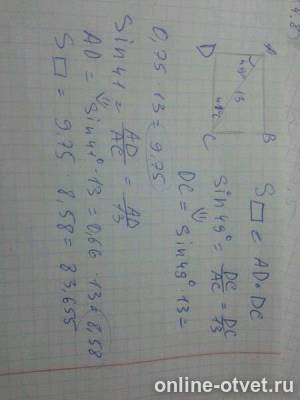 4.8
A B
D C
49° 13
41°
S□ = AD·DC
Sin 49° = DC/AC = DC/13
DC = Sin 49°·13 =
0,75 · 13 = 9.75
Sin 41 = AD/AC = AD/13
AD = Sin 41°·13 = 0,66 · 13 = 8,58
S□ = 9.75 · 8,58 = 83,655
online-otvet.ru